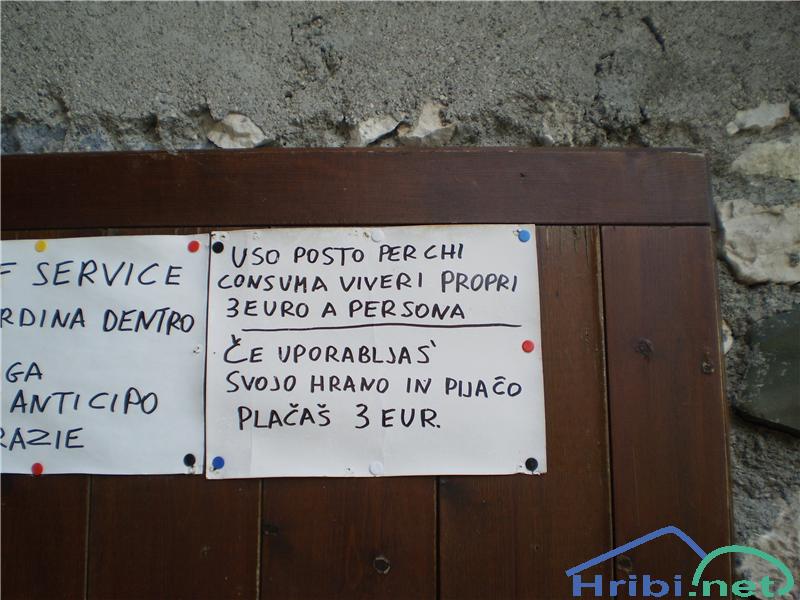 F SERVICE
RDINA DENTRO
GA
ANTICIPO
RAZIE
USO POSTO PER CHI
CONSUMA VIVERI PROPRI
3 EURO A PERSONA
ČE UPORABLJAŠ
SVOJO HRANO IN PIJAČO
PLAČAŠ 3 EUR.
Hribi.net